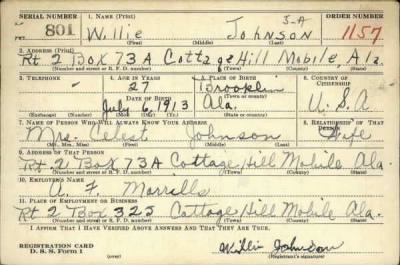 SERIAL NUMBER 1. NAME (Print) ORDER NUMBER
801 Willie Johnson S-A 1157
(First) (Middle) (Last)
2. ADDRESS (Print)
Rt 2 Box 73A Cottage Hill Mobile, Ala.
(Number and street or R. F. D. number) (Town) (County) (State)
3. TELEPHONE 4. AGE IN YEARS 5. PLACE OF BIRTH 6. COUNTRY OF CITIZENSHIP
27 Brooklin
DATE OF BIRTH (Town or county)
July 6, 1913 Ala. U.S.A
(Exchange) (Number) (Mo.) (Day) (Yr.) (State or country)
7. NAME OF PERSON WHO WILL ALWAYS KNOW YOUR ADDRESS 8. RELATIONSHIP OF THAT PERSON
Mrs. Johnson Wife
(Mr., Mrs., Miss) (First) (Middle) (Last)
9. ADDRESS OF THAT PERSON
Rt 2 Box 73A Cottage Hill Mobile Ala.
(Number and street or R. F. D. number) (Town) (County) (State)
10. EMPLOYER'S NAME
F. Morrills
11. PLACE OF EMPLOYMENT OR BUSINESS
Rt 2 Box 325 Cottage Hill Mobile Ala.
(Number and street or R. F. D. number) (Town) (County) (State)
I AFFIRM THAT I HAVE VERIFIED ABOVE ANSWERS AND THAT THEY ARE TRUE.
REGISTRATION CARD
D. S. S. Form 1 Willie Johnson
(Registrant's signature)